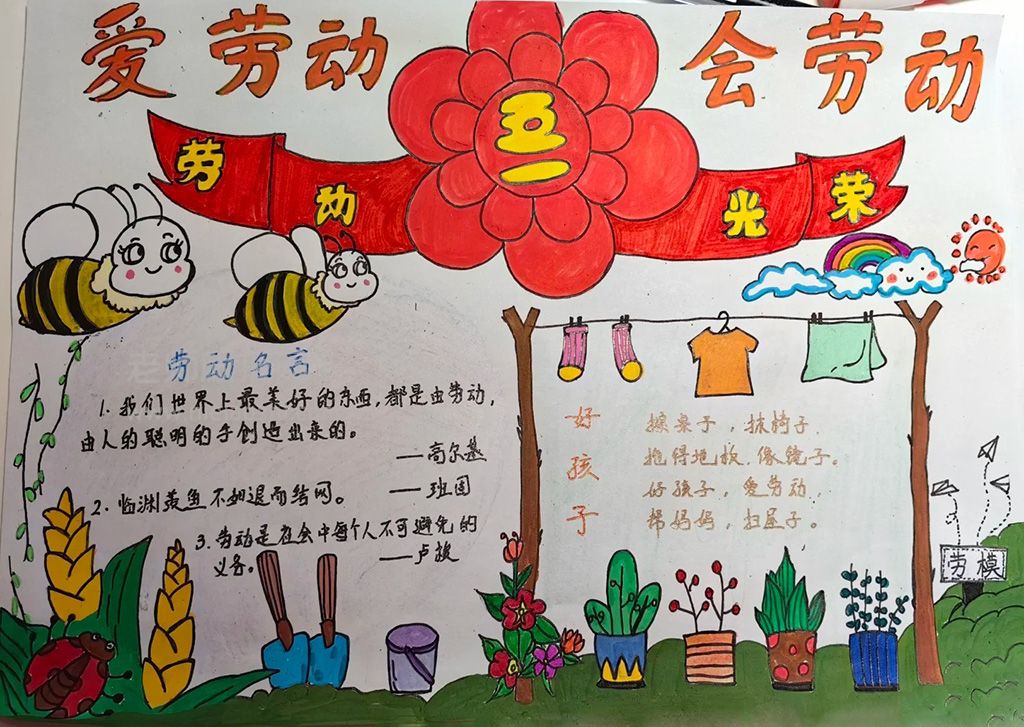 爱劳动 会劳动
五一
劳动 光荣
劳动名言
1. 我们世界上最美好的东西,都是由劳动,
由人的聪明的手创造出来的。
——高尔基
2. 临渊羡鱼 不如退而结网。
——班固
3. 劳动是社会中每个人不可避免的
义务。 ——卢梭
好孩子
擦桌子,抹椅子,
拖得地板像镜子。
好孩子,爱劳动,
帮妈妈,扫屋子。
劳模